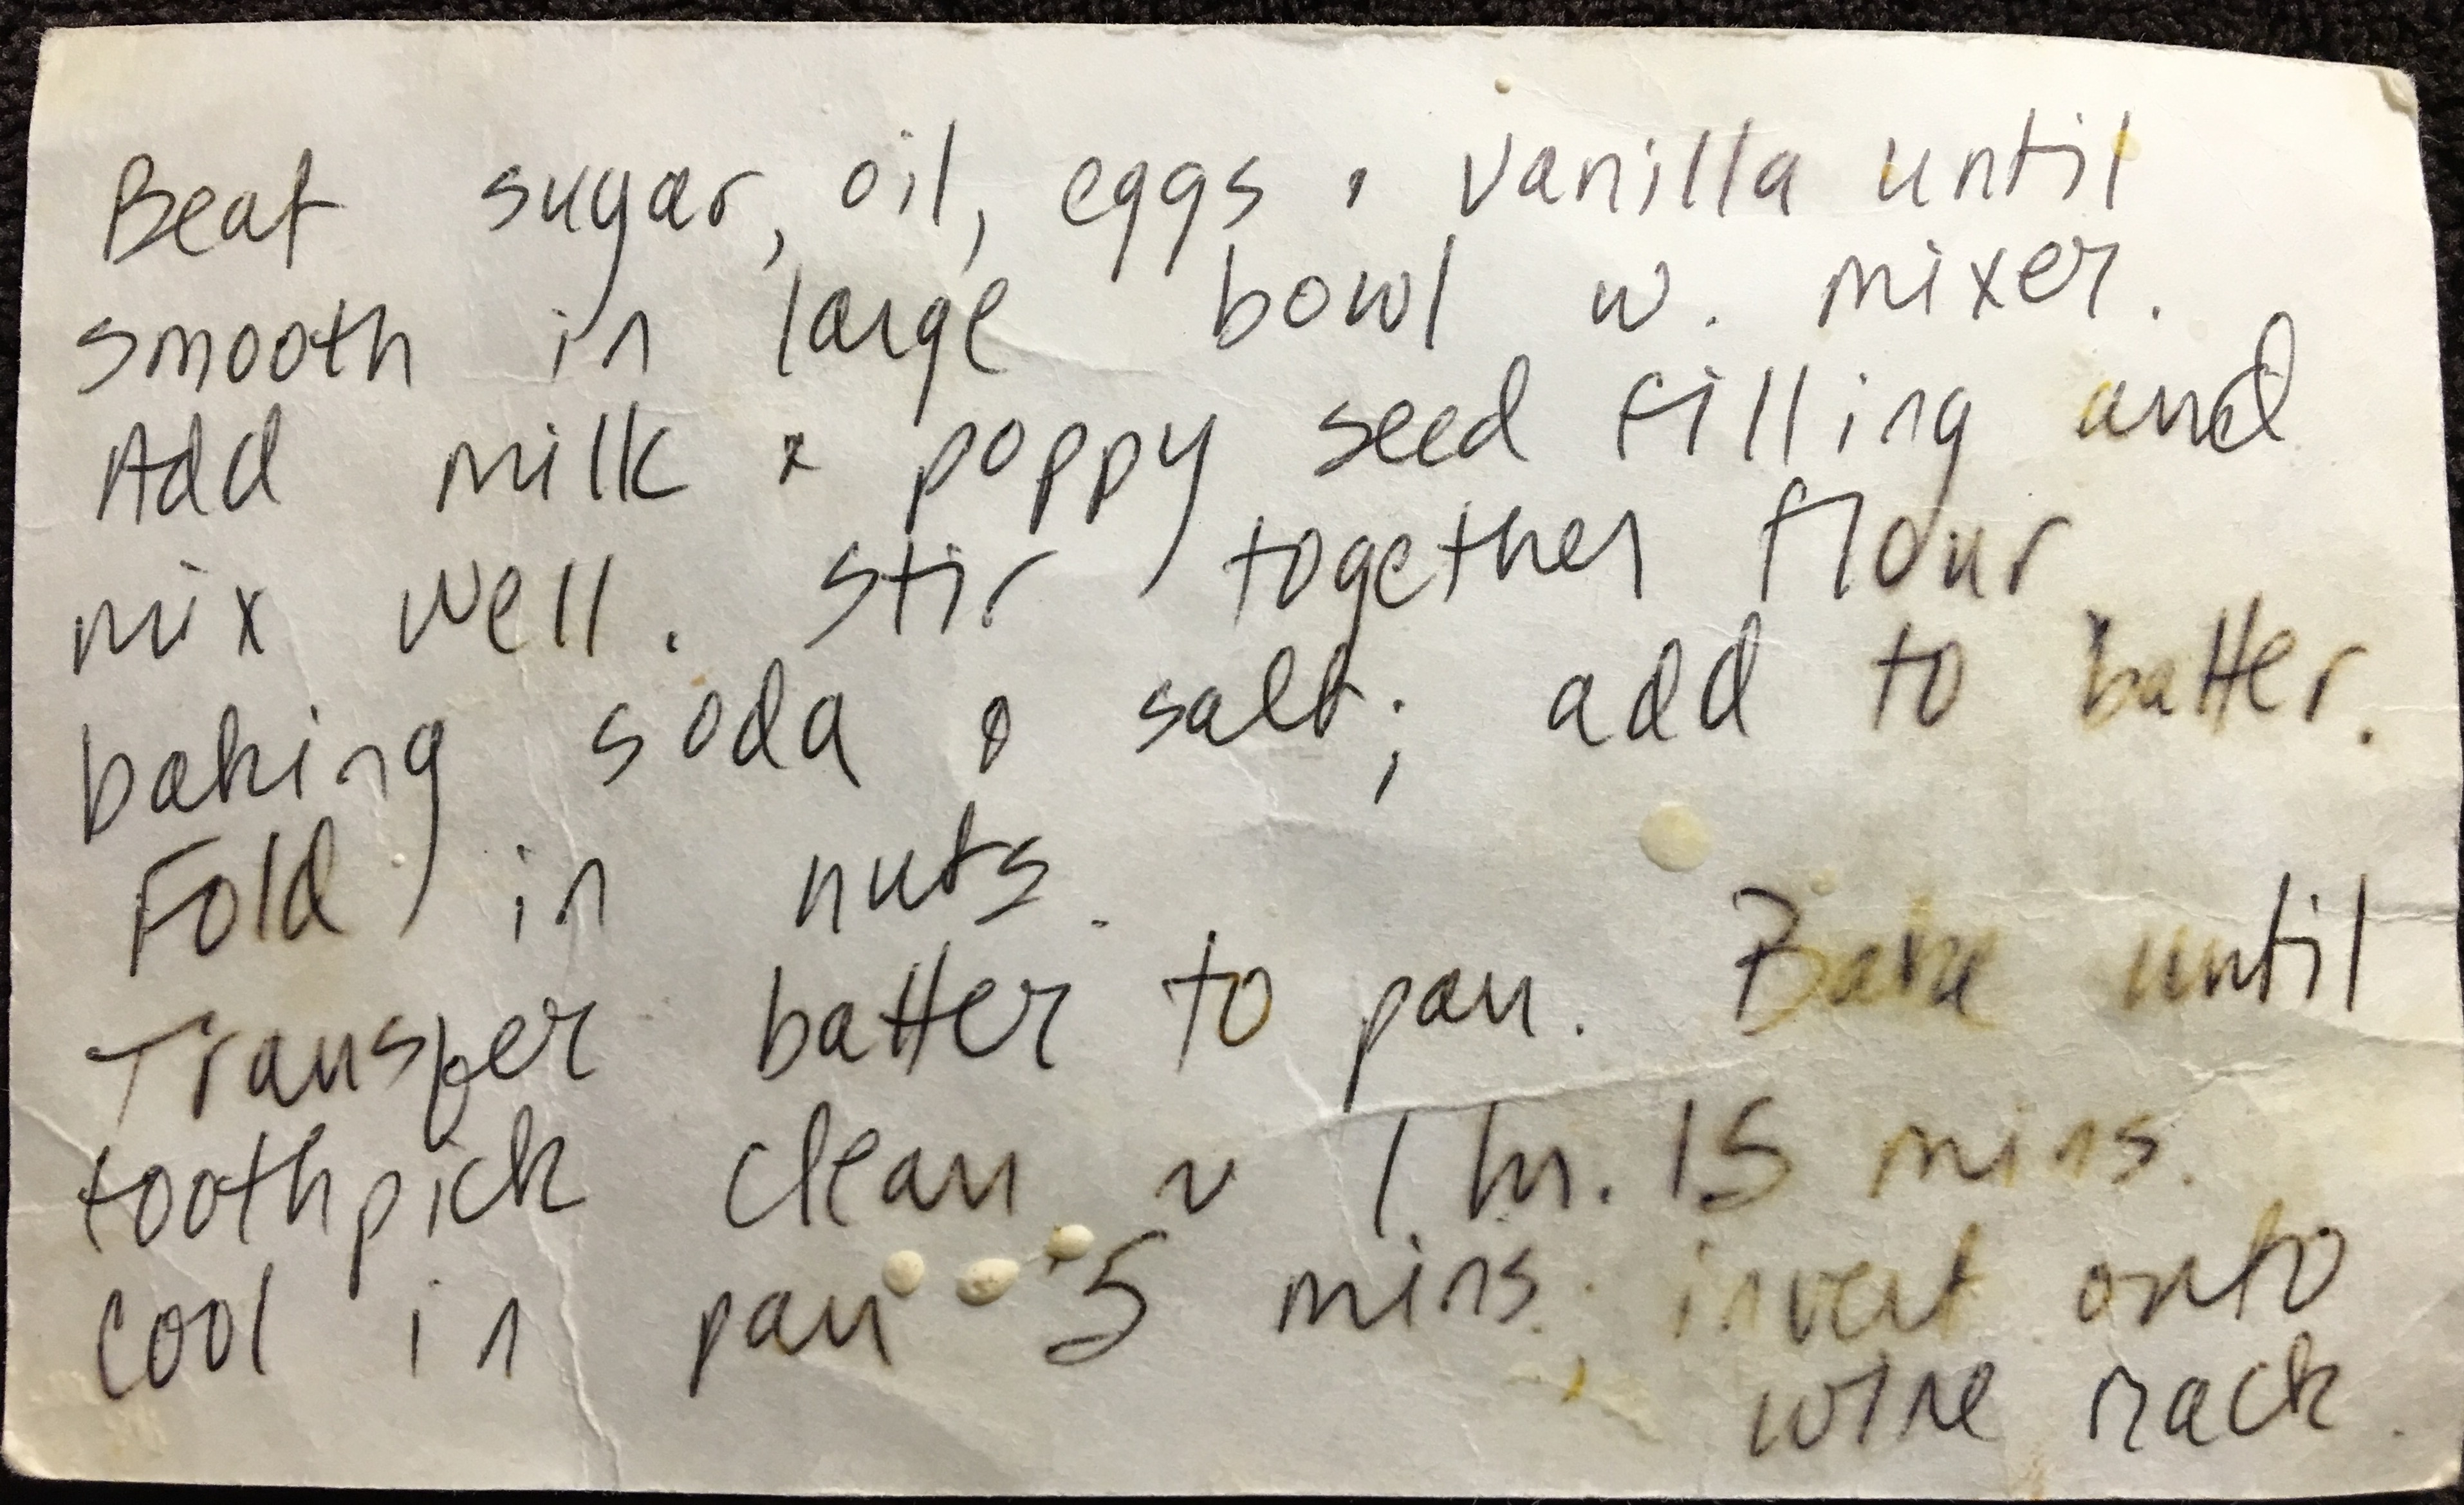 Beat sugar, oil, eggs & vanilla until
smooth in large bowl w. mixer.
Add milk & poppy seed filling and
mix well. Stir together flour
baking soda & salt; add to batter.
Fold in nuts.
Transfer batter to pan. Bake until
toothpick clean ~ 1 hr. 15 mins.
Cool in pan 5 mins. invert onto
wire rack.